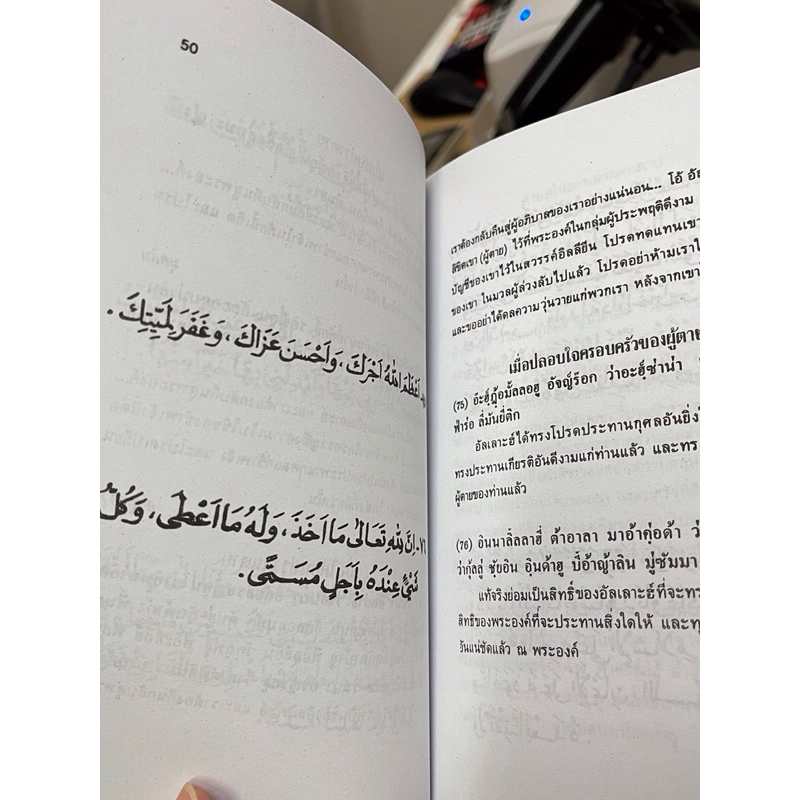 50
٧٥- اَعْظَمَ اللّٰهُ اَجْرَكَ، وَاَحْسَنَ عَزَاكَ، وَغَفَرَ لِمَيِّتِكَ.
٧٦- اِنَّ لِلّٰهِ تَعَالٰى مَا اَخَذَ، وَلَهُ مَا اَعْطٰى، وَكُلُّ
شَيْءٍ عِنْدَهُ بِاَجَلٍ مُسَمًّى.
เราต้องกลับคืนสู่ผู้อภิบาลของเราอย่างแน่นอน... โอ้ อัล
ลิขิตเขา (ผู้ตาย) ไว้ที่พระองค์ในกลุ่มผู้ประพฤติดีงาม
บัญชีของเขาไว้ในสวรรค์อิลลียีน โปรดทดแทนเขา
ของเขา ในมวลผู้ล่วงลับไปแล้ว โปรดอย่าห้ามเราใ
และขออย่าได้ดลความวุ่นวายแก่พวกเรา หลังจากเขา
เมื่อปลอบใจครอบครัวของผู้ตาย
(75) อ๊ะฮฺฎ้อมั้ลลอฮู อัจญ์ร๊อก ว่าอะฮฺซ่าน่า
ฟ่าร่อ ลี่มันยี่ติก
อัลเลาะฮ์ได้ทรงโปรดประทานกุศลอันยิ่งใ
ทรงประทานเกียรติอันดีงามแก่ท่านแล้ว และทร
ผู้ตายของท่านแล้ว
(76) อินนาลิ้ลลาฮี่ ต้าอาลา มาอ้าค่อด้า ว่
ว่ากุ้ลลู่ ชั่ยอิน อินด้าฮู บี้อ้าญ้าลิน มู่ซัมมา
แท้จริงย่อมเป็นสิทธิ์ของอัลเลาะฮ์ที่จะทร
สิทธิของพระองค์ที่จะประทานสิ่งใดให้ และทุ
อันแน่ชัดแล้ว ณ พระองค์